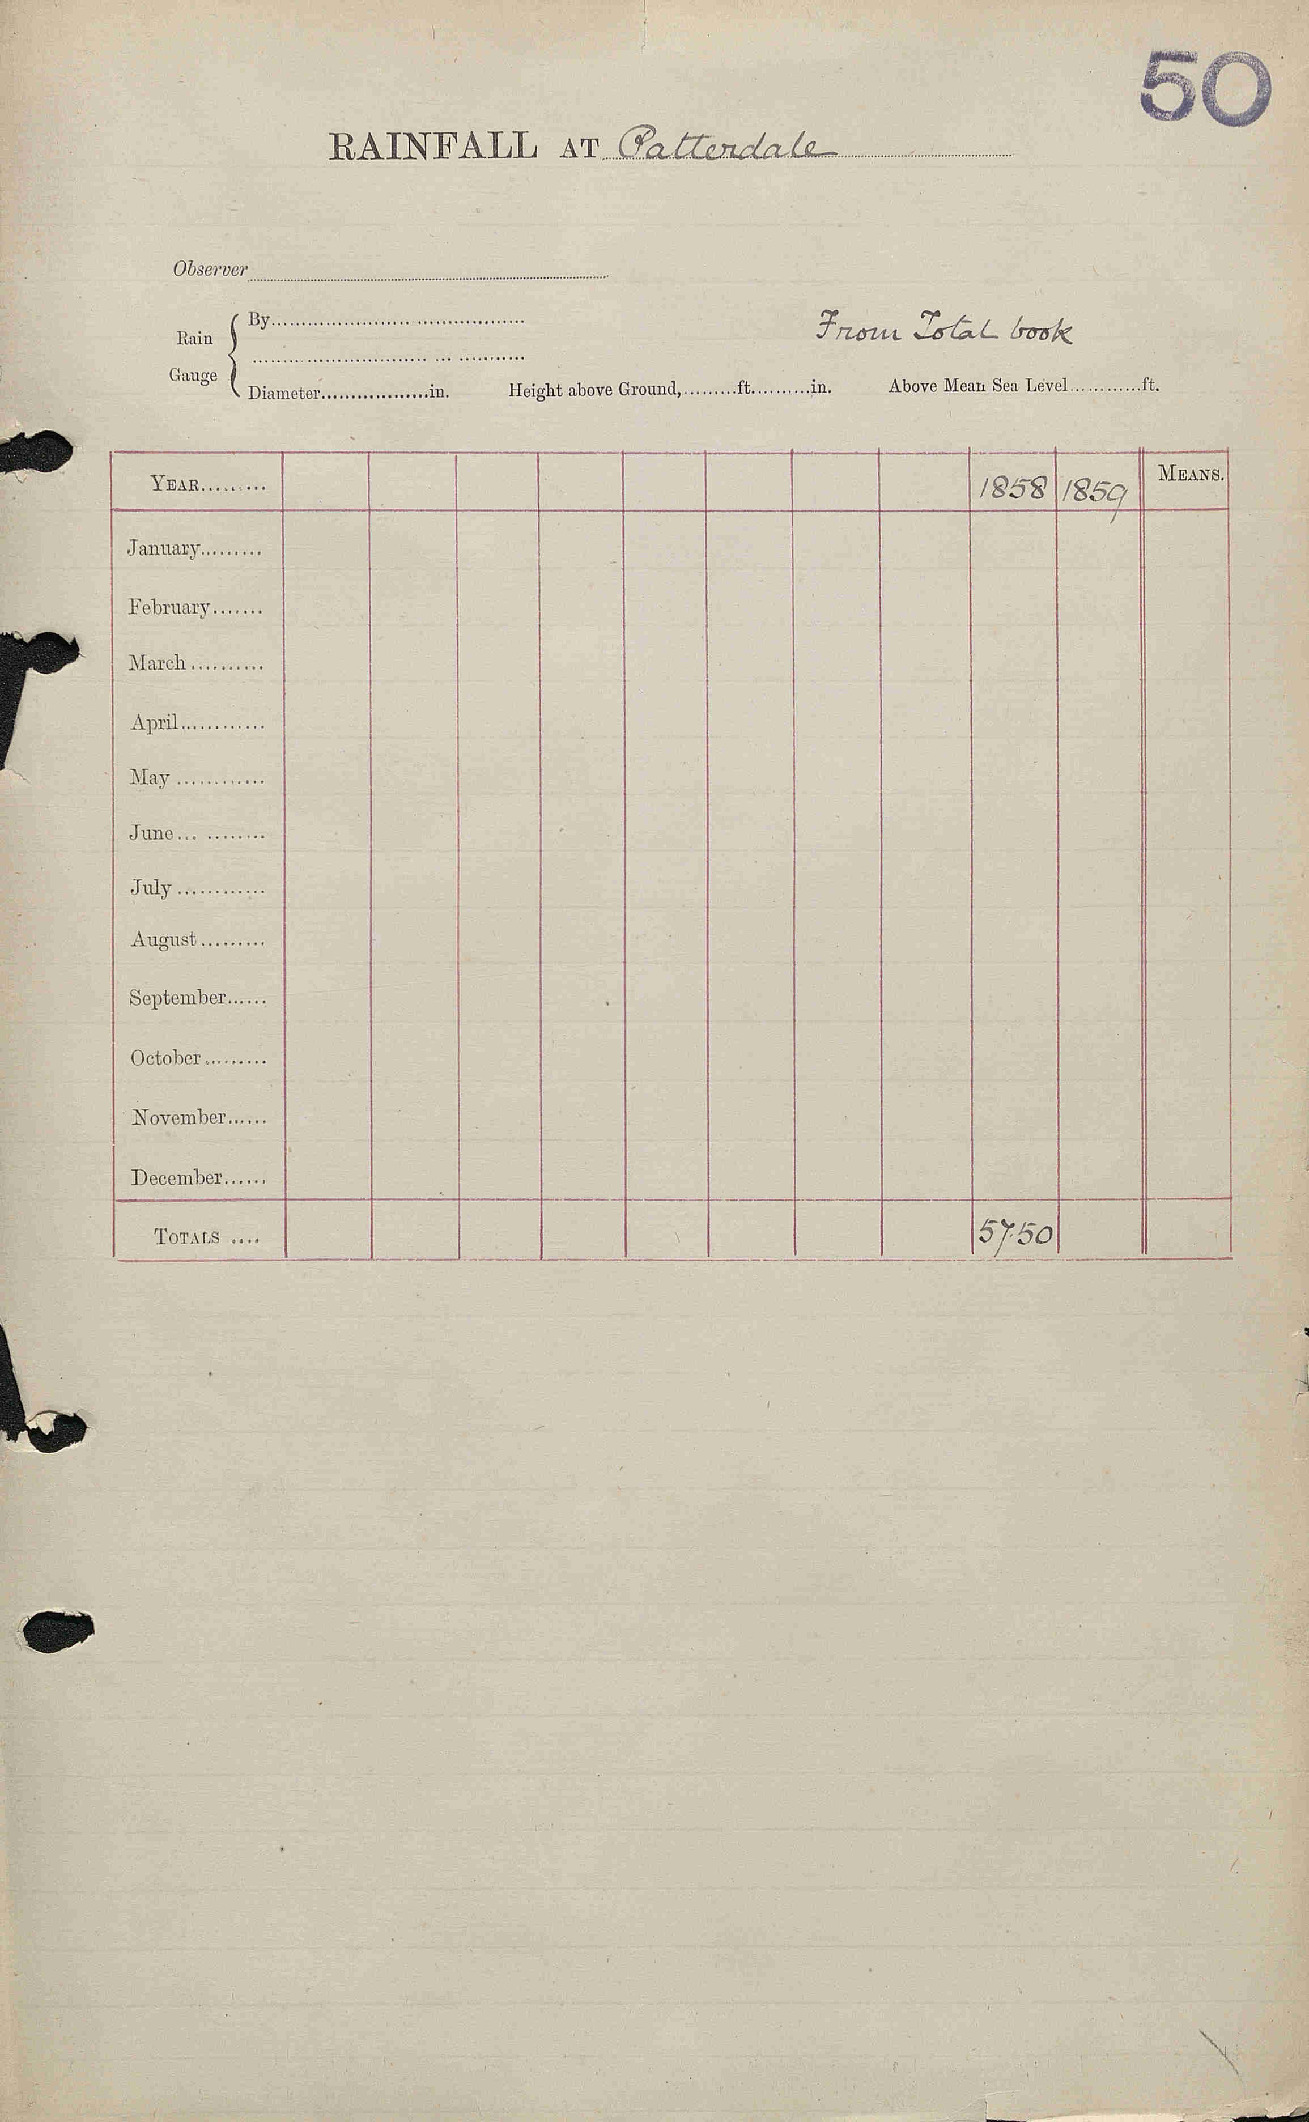 50
RAINFALL AT Patterdale
Observer
Rain Gauge { By
From Total book
Diameter..................in. Height above Ground,.........ft..........in. Above Mean Sea Level............ft.
YEAR......... 1858 1859 MEANS.
January.........
February.......
March..........
April............
May............
June... ........
July............
August.........
September......
October.........
November......
December......
TOTALS .... 57.50